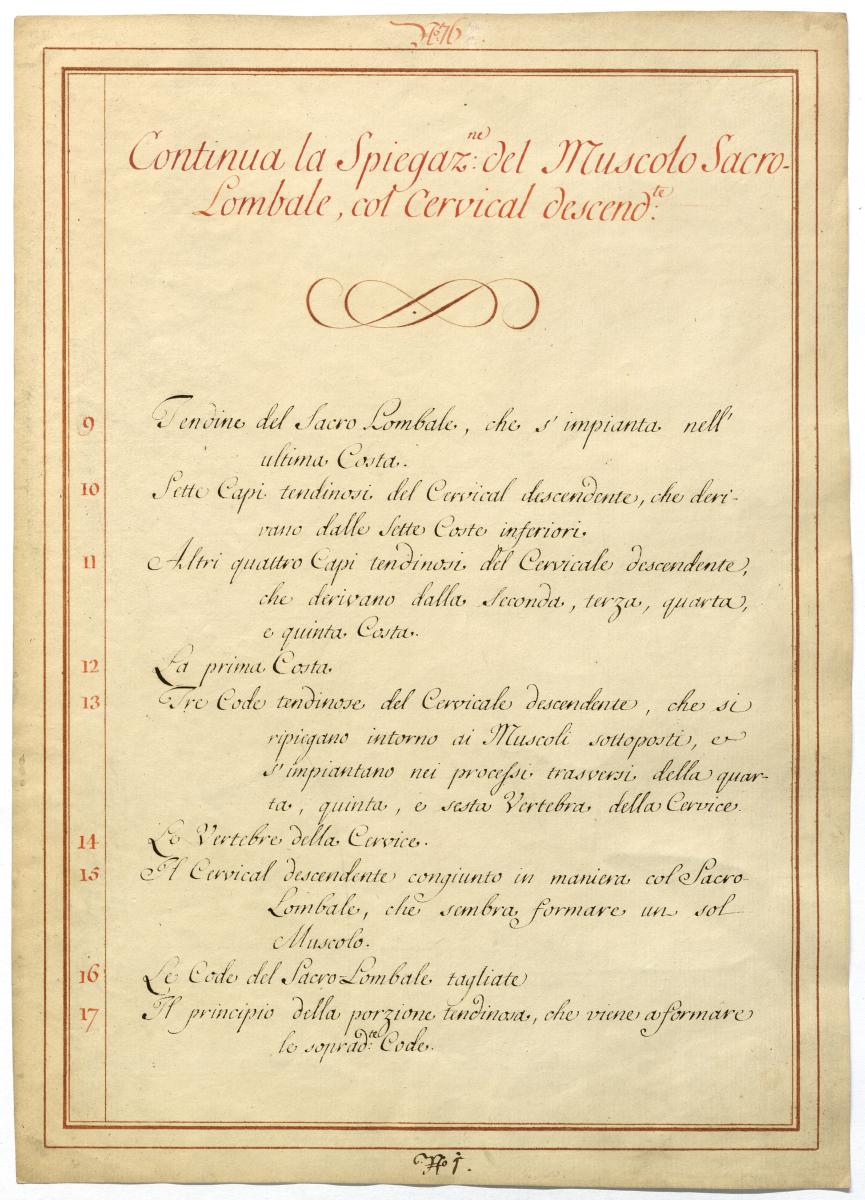 N.º 76
Continua la Spiegaz:ne del Muscolo Sacro-
Lombale, col Cervical descend:te
9 Tendine del Sacro Lombale, che s'impianta nell'
ultima Costa.
10 Sette Capi tendinosi del Cervical descendente, che deri-
vano dalle Sette Coste inferiori.
11 Altri quattro Capi tendinosi del Cervicale descendente,
che derivano dalla Seconda, terza, quarta,
e quinta Costa.
12 La prima Costa
13 Tre Code tendinose del Cervicale descendente, che si
ripiegano intorno ai Muscoli sottoposti, e
s'impiantano nei processi trasversi della quar-
ta, quinta, e sesta Vertebra della Cervice.
14 Le Vertebre della Cervice.
15 Il Cervical descendente congiunto in maniera col Sacro-
Lombale, che sembra formare un sol
Muscolo.
16 Le Code del Sacro-Lombale tagliate
17 Il principio della porzione tendinosa, che viene a formare
le soprad:te Code.